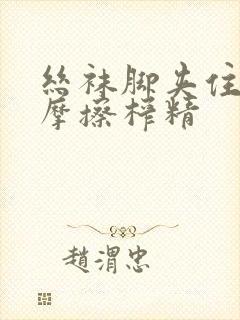 丝袜脚夹住
摩擦榨精
趙渭忠